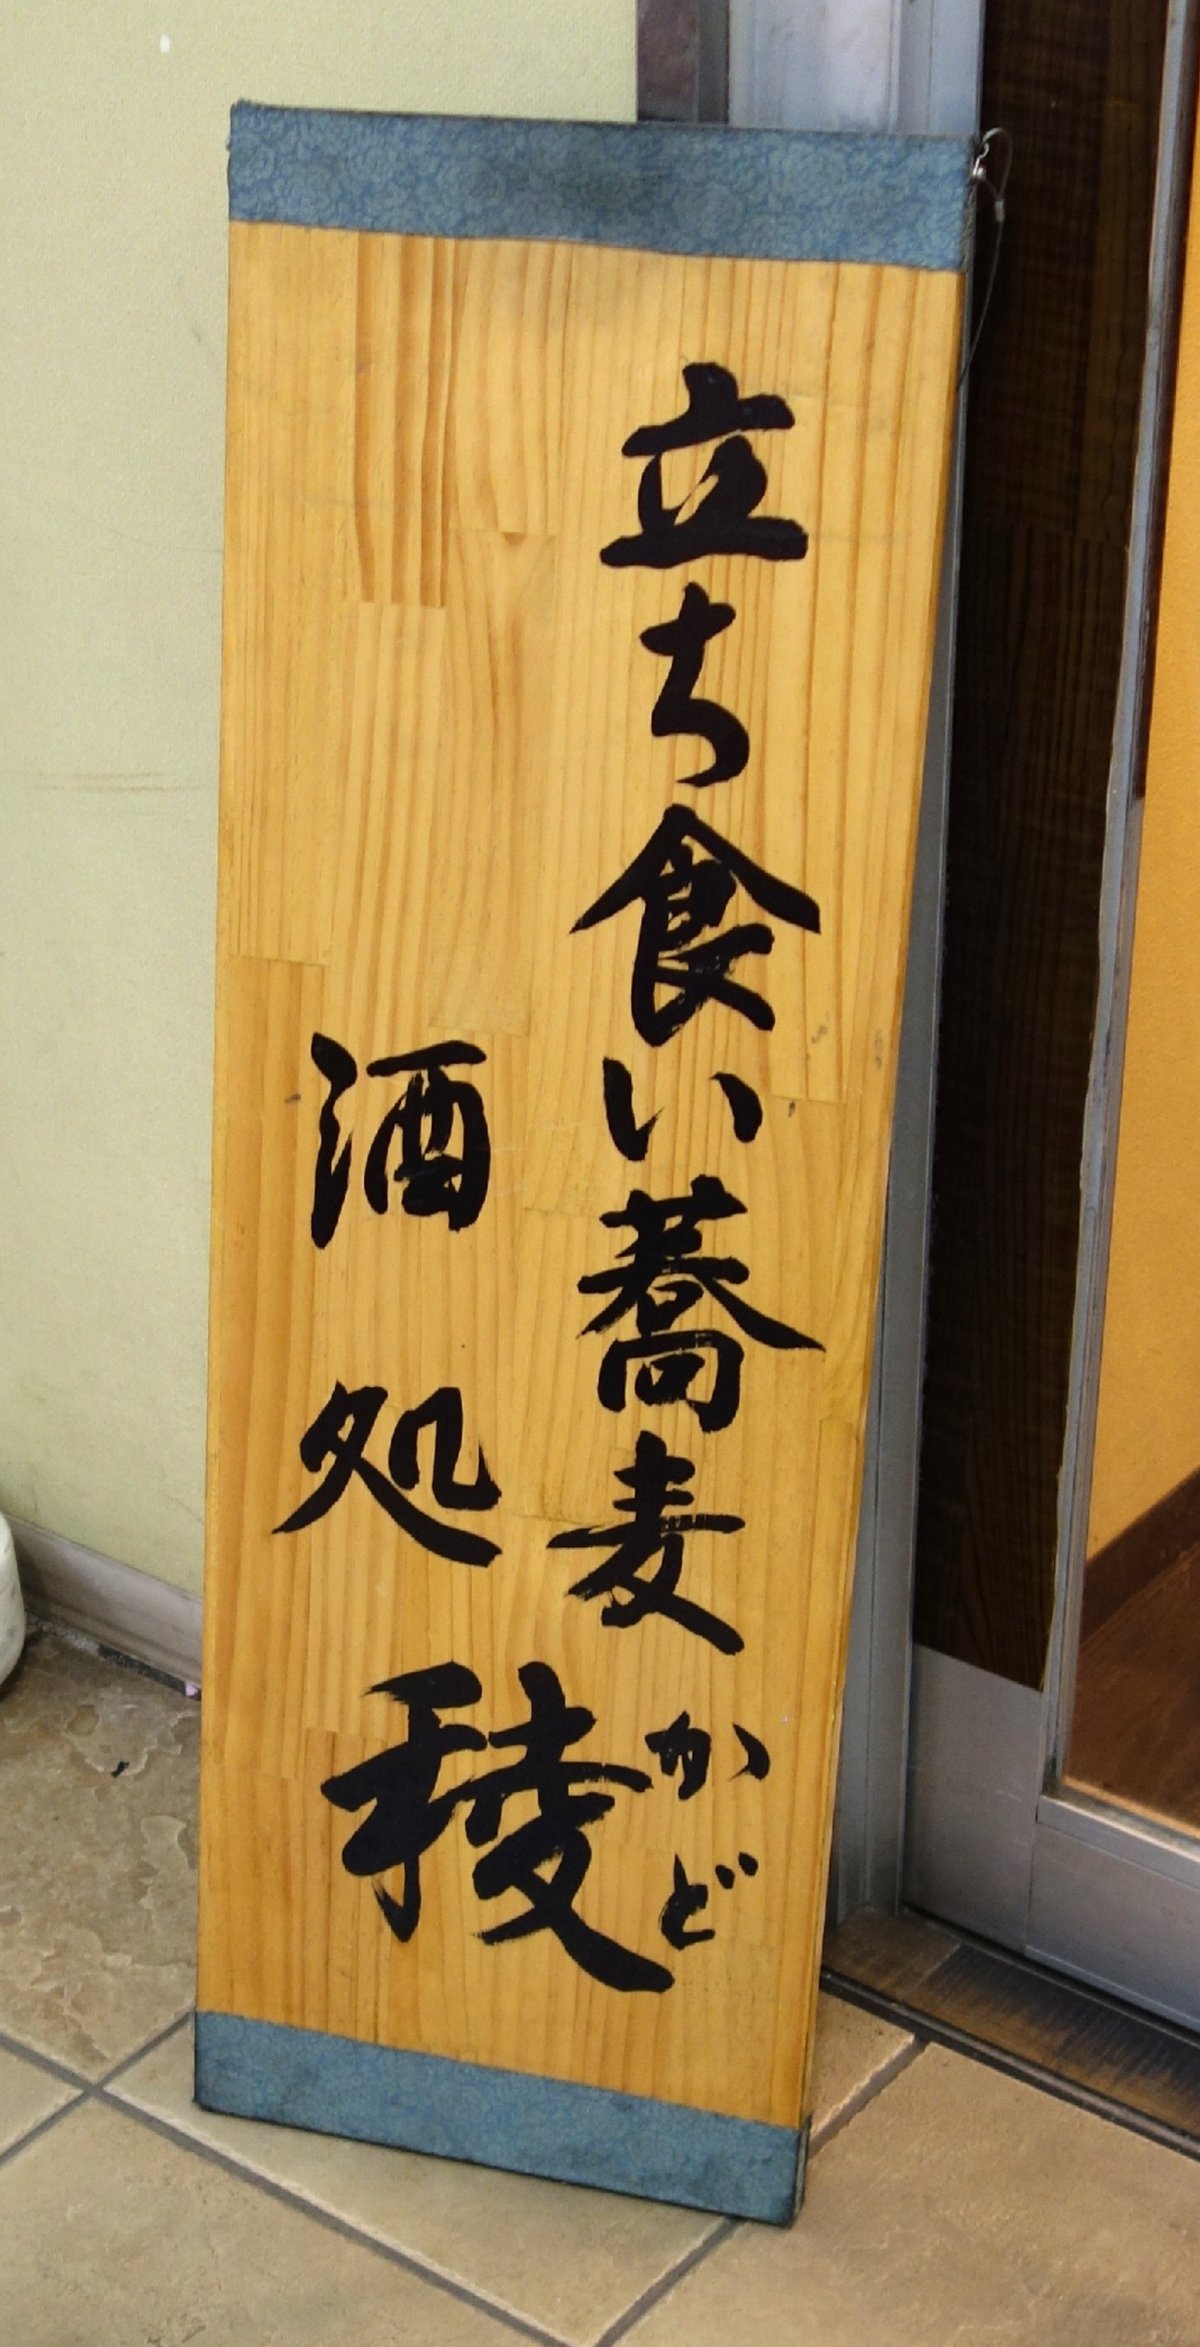 立ち食い蕎麦
酒処
稜
かど